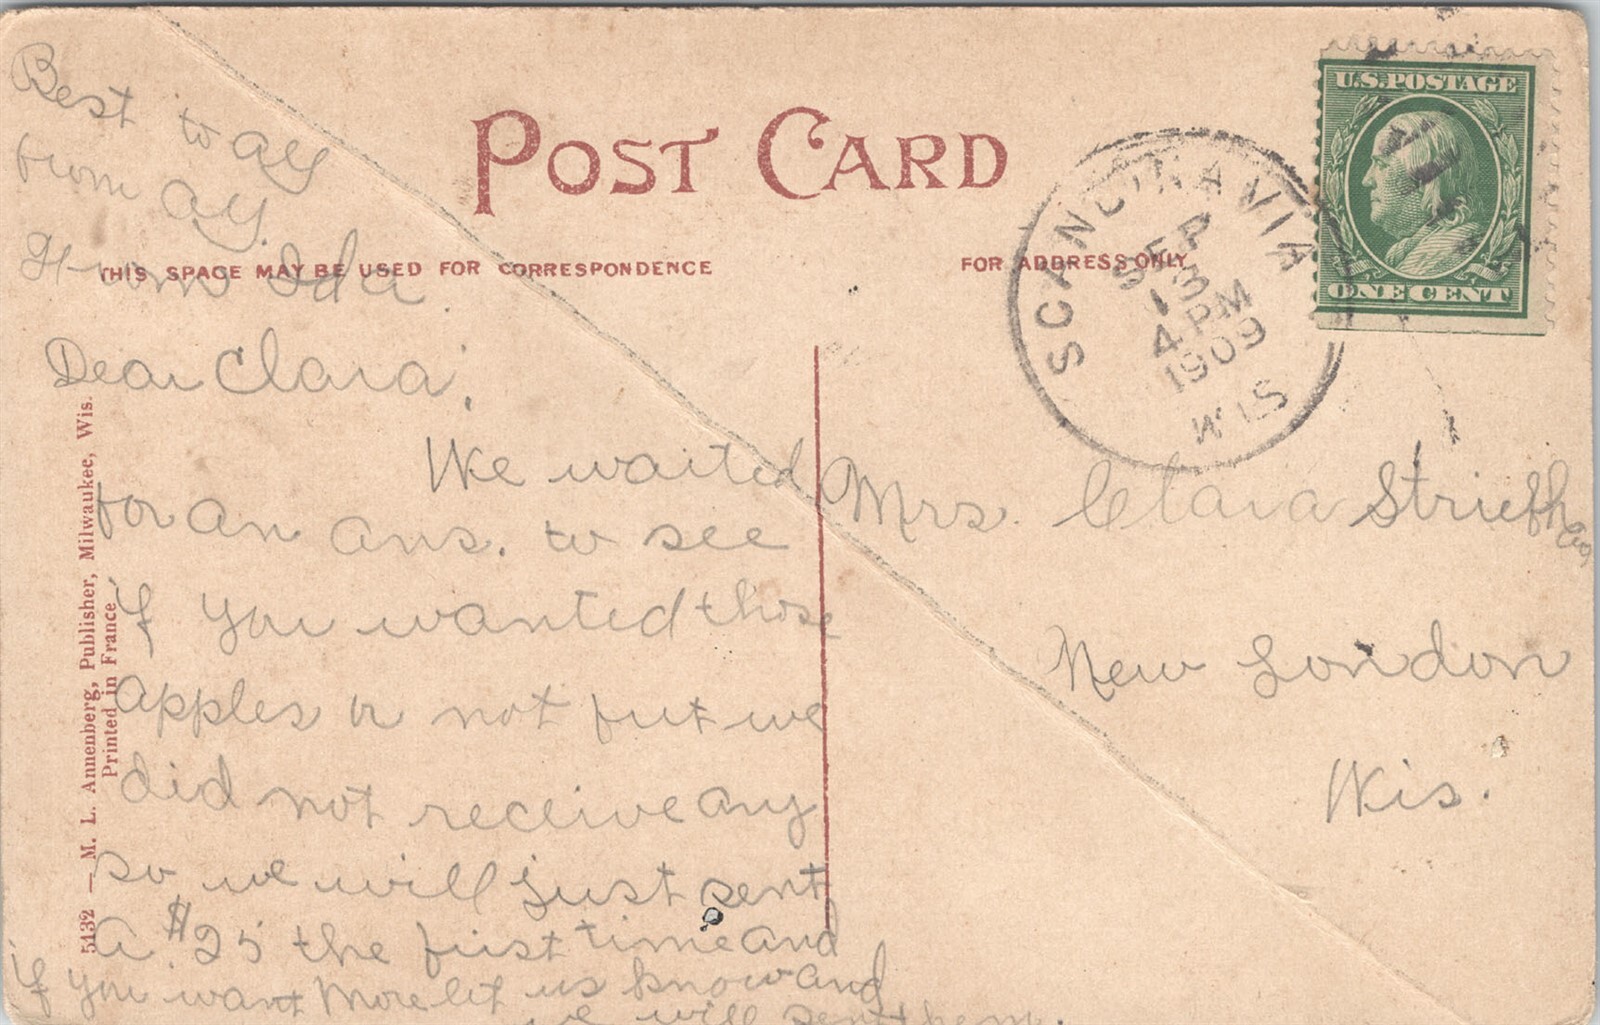 Best to all
from all.
From Ida.
POST CARD
THIS SPACE MAY BE USED FOR CORRESPONDENCE
FOR ADDRESS ONLY
U.S. POSTAGE
ONE CENT
SCANDINAVIA
SEP
13
4 PM
1909
WIS
Dear Clara,
We waited
for an ans. to see
if you wanted those
apples or not but we
did not receive any
so we will just sent
a $25 the first time and
if you want more let us know and
we will sent them.
Mrs. Clara
New London
Wis.
5432 — M. L. Annenberg, Publisher, Milwaukee, Wis.
Printed in France